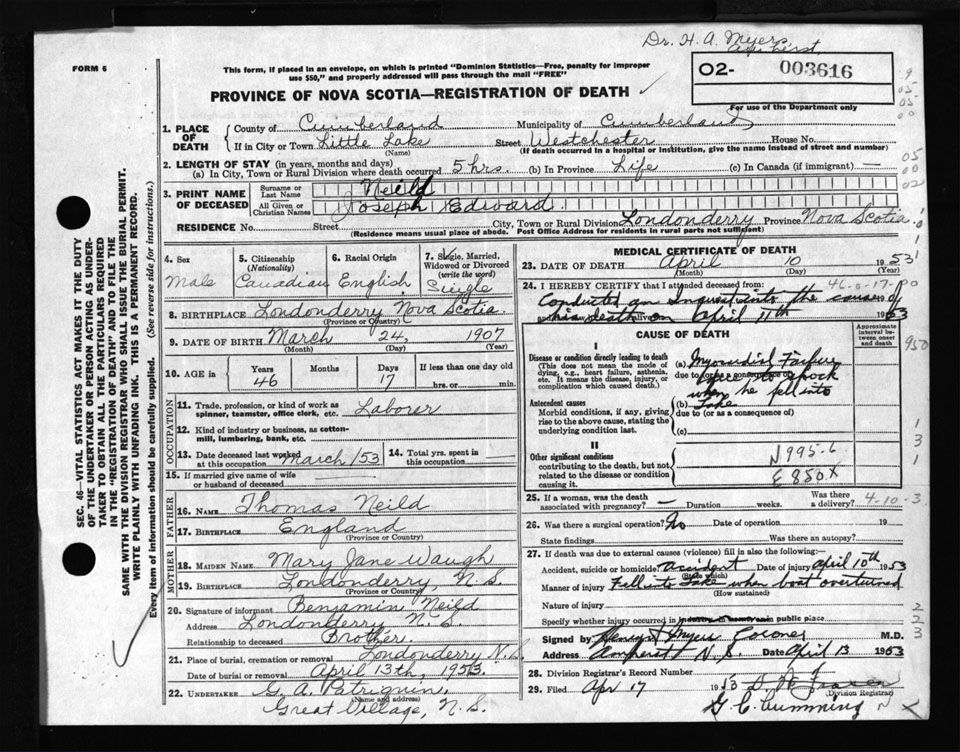 Dr. H. A. Myers
Amherst
FORM 6
This form, if placed in an envelope, on which is printed "Dominion Statistics—Free, penalty for improper
use $50," and properly addressed will pass through the mail "FREE"
02- 003616
For use of the Department only
PROVINCE OF NOVA SCOTIA—REGISTRATION OF DEATH
1. PLACE OF DEATH
County of Cumberland Municipality of Cumberland
If in City or Town Little Lake Street Westchester House No.
(Name) (If death occurred in a hospital or institution, give the name instead of street and number)
2. LENGTH OF STAY (in years, months and days)
(a) In City, Town or Rural Division where death occurred 5 hrs. (b) In Province Life (c) In Canada (if immigrant) —
3. PRINT NAME OF DECEASED
Surname or Last Name Neild
All Given or Christian Names Joseph Edward
RESIDENCE No. Street City, Town or Rural Division Londonderry Province Nova Scotia
(Residence means usual place of abode. Post Office Address for residents in rural parts not sufficient)
4. Sex Male
5. Citizenship (Nationality) Canadian
6. Racial Origin English
7. Single, Married, Widowed or Divorced (write the word) Single
8. BIRTHPLACE Londonderry Nova Scotia
(Province or Country)
9. DATE OF BIRTH March 24, 1907
(Month) (Day) (Year)
10. AGE in Years 46 Months Days 17 If less than one day old hrs. or min.
OCCUPATION
11. Trade, profession, or kind of work as spinner, teamster, office clerk, etc. Laborer
12. Kind of industry or business, as cotton-mill, lumbering, bank, etc.
13. Date deceased last worked at this occupation March/53
14. Total yrs. spent in this occupation
15. If married give name of wife or husband of deceased
FATHER
16. NAME Thomas Neild
17. BIRTHPLACE England
(Province or Country)
MOTHER
18. MAIDEN NAME Mary Jane Waugh
19. BIRTHPLACE Londonderry, N. S.
(Province or Country)
20. Signature of informant Benjamin Neild
Address Londonderry N. S.
Relationship to deceased Brother.
21. Place of burial, cremation or removal Londonderry N.S.
Date of burial or removal April 13th, 1953.
22. UNDERTAKER G. A. Patriquin,
(Name and address)
Great Village, N. S.
MEDICAL CERTIFICATE OF DEATH
23. DATE OF DEATH April 10 1953
(Month) (Day) (Year)
24. I HEREBY CERTIFY that I attended deceased from:
46-0-17-
Conducted an Inquest into the cause of
his death on April 11th 1953
CAUSE OF DEATH
Approximate interval between onset and death
I
Disease or condition directly leading to death
(This does not mean the mode of dying, e.g., heart failure, asthenia, etc. It means the disease, injury, or complication which caused death.)
(a) Myocardial Failure
due to (or as a consequence of)
due to shock
when he fell into
Antecedent causes
Morbid conditions, if any, giving rise to the above cause, stating the underlying condition last.
(b) Lake
due to (or as a consequence of)
(c)
II
Other significant conditions
contributing to the death, but not related to the disease or condition causing it.
N995.6
E850X
25. If a woman, was the death associated with pregnancy? — Duration weeks. Was there a delivery?
4-10-3
26. Was there a surgical operation? No Date of operation 19
State findings Was there an autopsy?
27. If death was due to external causes (violence) fill in also the following:—
Accident, suicide or homicide? Accident Date of injury April 10th 1953
(State which)
Manner of injury Fell into Lake when boat overturned
(How sustained)
Nature of injury
Specify whether injury occurred in public place
Signed by Henry A Myers Coroner M.D.
Address Amherst N. S. Date April 13 1953
28. Division Registrar's Record Number
29. Filed Apr 17 1953
(Division Registrar)
G. C. Cumming
SEC. 46—VITAL STATISTICS ACT MAKES IT THE DUTY
OF THE UNDERTAKER OR PERSON ACTING AS UNDER-
TAKER TO OBTAIN ALL THE PARTICULARS REQUIRED
IN THE "REGISTRATION OF DEATH" AND TO FILE THE
SAME WITH THE DIVISION REGISTRAR WHO SHALL ISSUE THE BURIAL PERMIT.
WRITE PLAINLY WITH UNFADING INK. THIS IS A PERMANENT RECORD.
Every item of information should be carefully supplied. (See reverse side for instructions.)